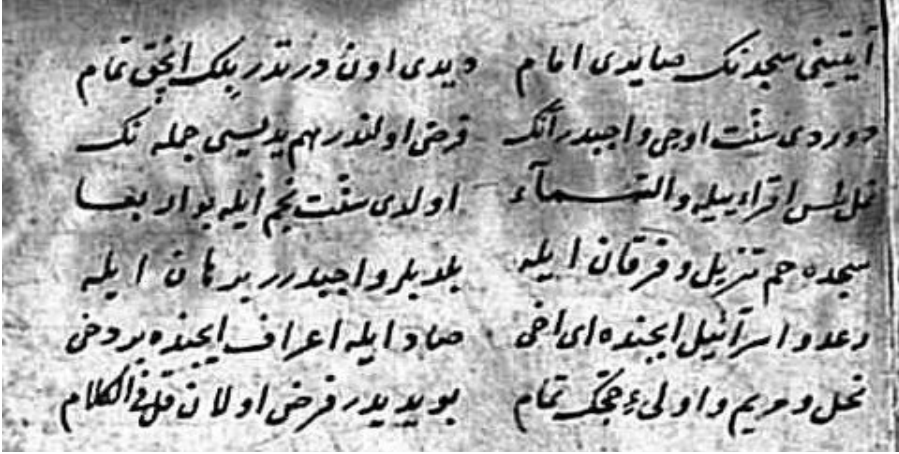 آيتينى سجدنك صايدى امام ديدى اون دررتدر بلك انجق تمام
دوردى سنّت اوچى واجبدر آنك فرض اولندر هم يديسى جمله نك
نمل اقراء يله والسمآء اولدى سنّت نجم ايله بو اربعا
سجده حم تنزيل و فرقان ايله بلديلر واجبدرر برهان ايله
رعد و اسرآئيل ايچنده اى اخى صاد ايله اعراف ايچنده بر دخى
نحل و مريم و اولىء حجك تمام بو يديدر فرض اولان قل فى الكلام